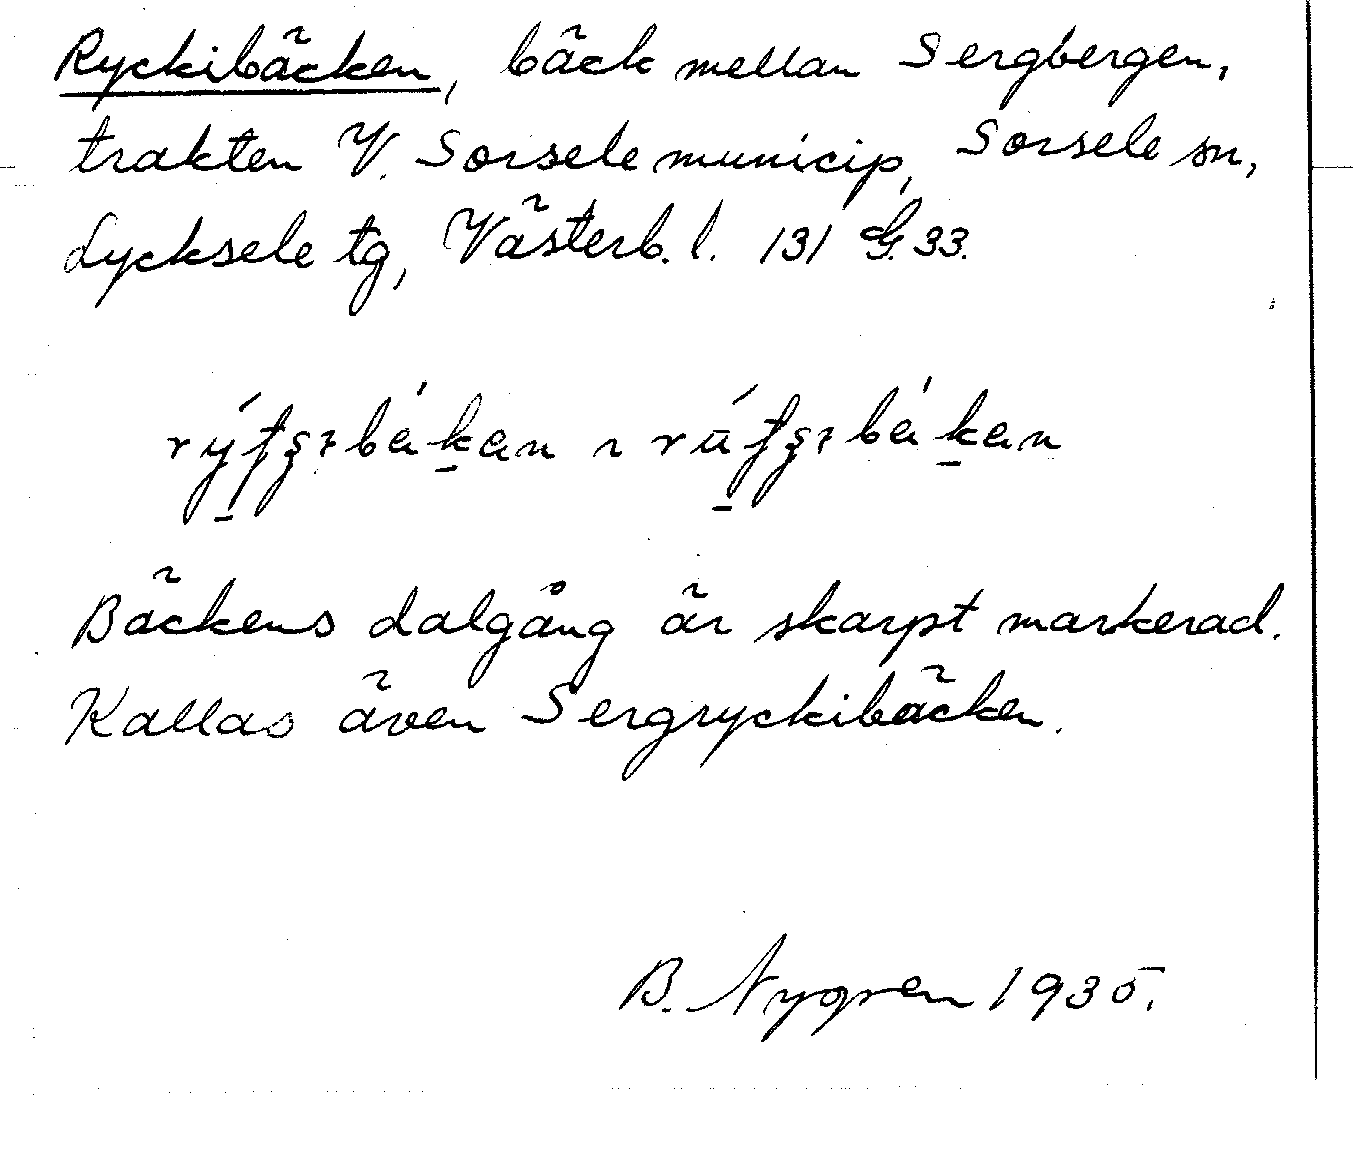 Ryckibäcken, bäck mellan Sergbergen,
trakten V. Sorsele municip, Sorsele sn,
Lycksele tg, Västerb. l. 131 G. 33.
Bäckens dalgång är skarpt markerad.
Kallas även Sergryckibäcken.
B. Nygren 1935.